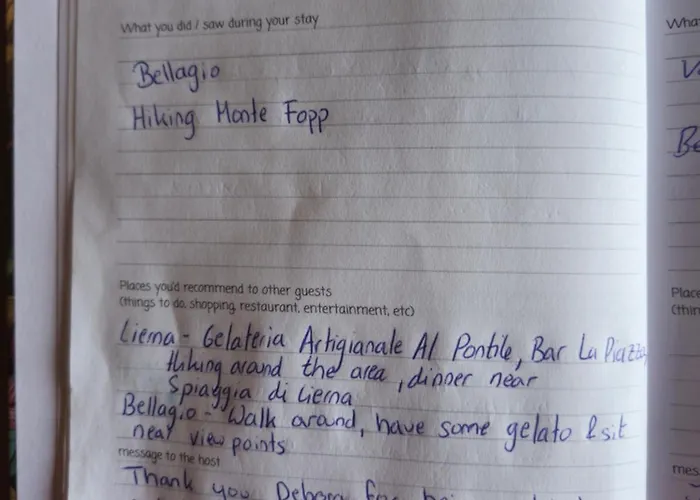 What you did / saw during your stay
Bellagio
Hiking Monte Fopp
Places you'd recommend to other guests
(things to do, shopping, restaurant, entertainment, etc)
Lierna - Gelateria Artigianale Al Pontile, Bar La Piazza
Hiking around the area, dinner near
Spiaggia di Lierna
Bellagio - Walk around, have some gelato & sit
near view points
message to the host
Thank you Debora for
What
Place
(thin
mes